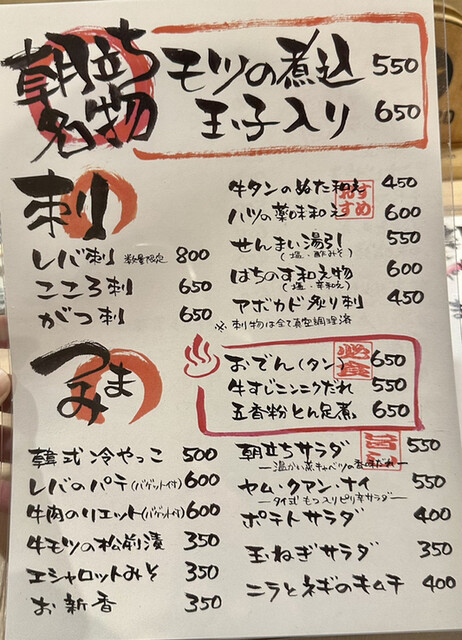 朝立ち名物
モツの煮込 550
玉子入り 650
刺り
レバ刺 数量限定 800
こころ刺 650
がつ刺 650
牛タンのぬた和え 450
おすすめ
ハツの薬味和え 600
せんまい湯引 550
(塩・酢みそ)
はちのす和え物 600
(塩・辛和え)
アボカド炙り刺 450
※刺物は全て真空調理済
つまみ
おでん(タン) 650
牛すじニンニクだれ 550
五香粉とん足煮 650
韓式冷やっこ 500
レバのパテ(バゲット付) 600
牛肉のリエット(バゲット付) 600
牛モツの松前漬 350
エシャロットみそ 350
お新香 350
朝立ちサラダ 550
―温かい蒸キャベツの香味だれ―
ヤム・クアン・ナイ 550
―タイ式もつスピリ辛サラダ―
ポテトサラダ 400
玉ねぎサラダ 350
ニラとネギのキムチ 400